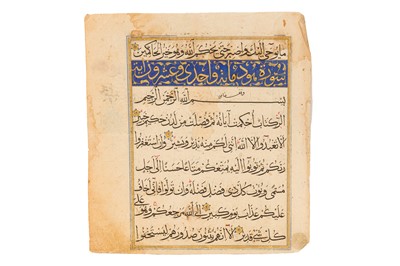 ما يوحى إليك واصبر حتى يحكم الله وهو خير الحاكمين
سورة هود مائة واحدى وعشرون آية
بسم الله الرحمن الرحيم
الر كتاب أحكمت آياته ثم فصلت من لدن حكيم خبير
ألا تعبدوا إلا الله إنني لكم منه نذير وبشير وأن استغفروا
ربكم ثم توبوا إليه يمتعكم متاعا حسنا إلى أجل
مسمى ويؤت كل ذي فضل فضله وإن تولوا فإني أخاف
عليكم عذاب يوم كبير إلى الله مرجعكم وهو على
كل شيء قدير ألا إنهم يثنون صدورهم ليستخفوا